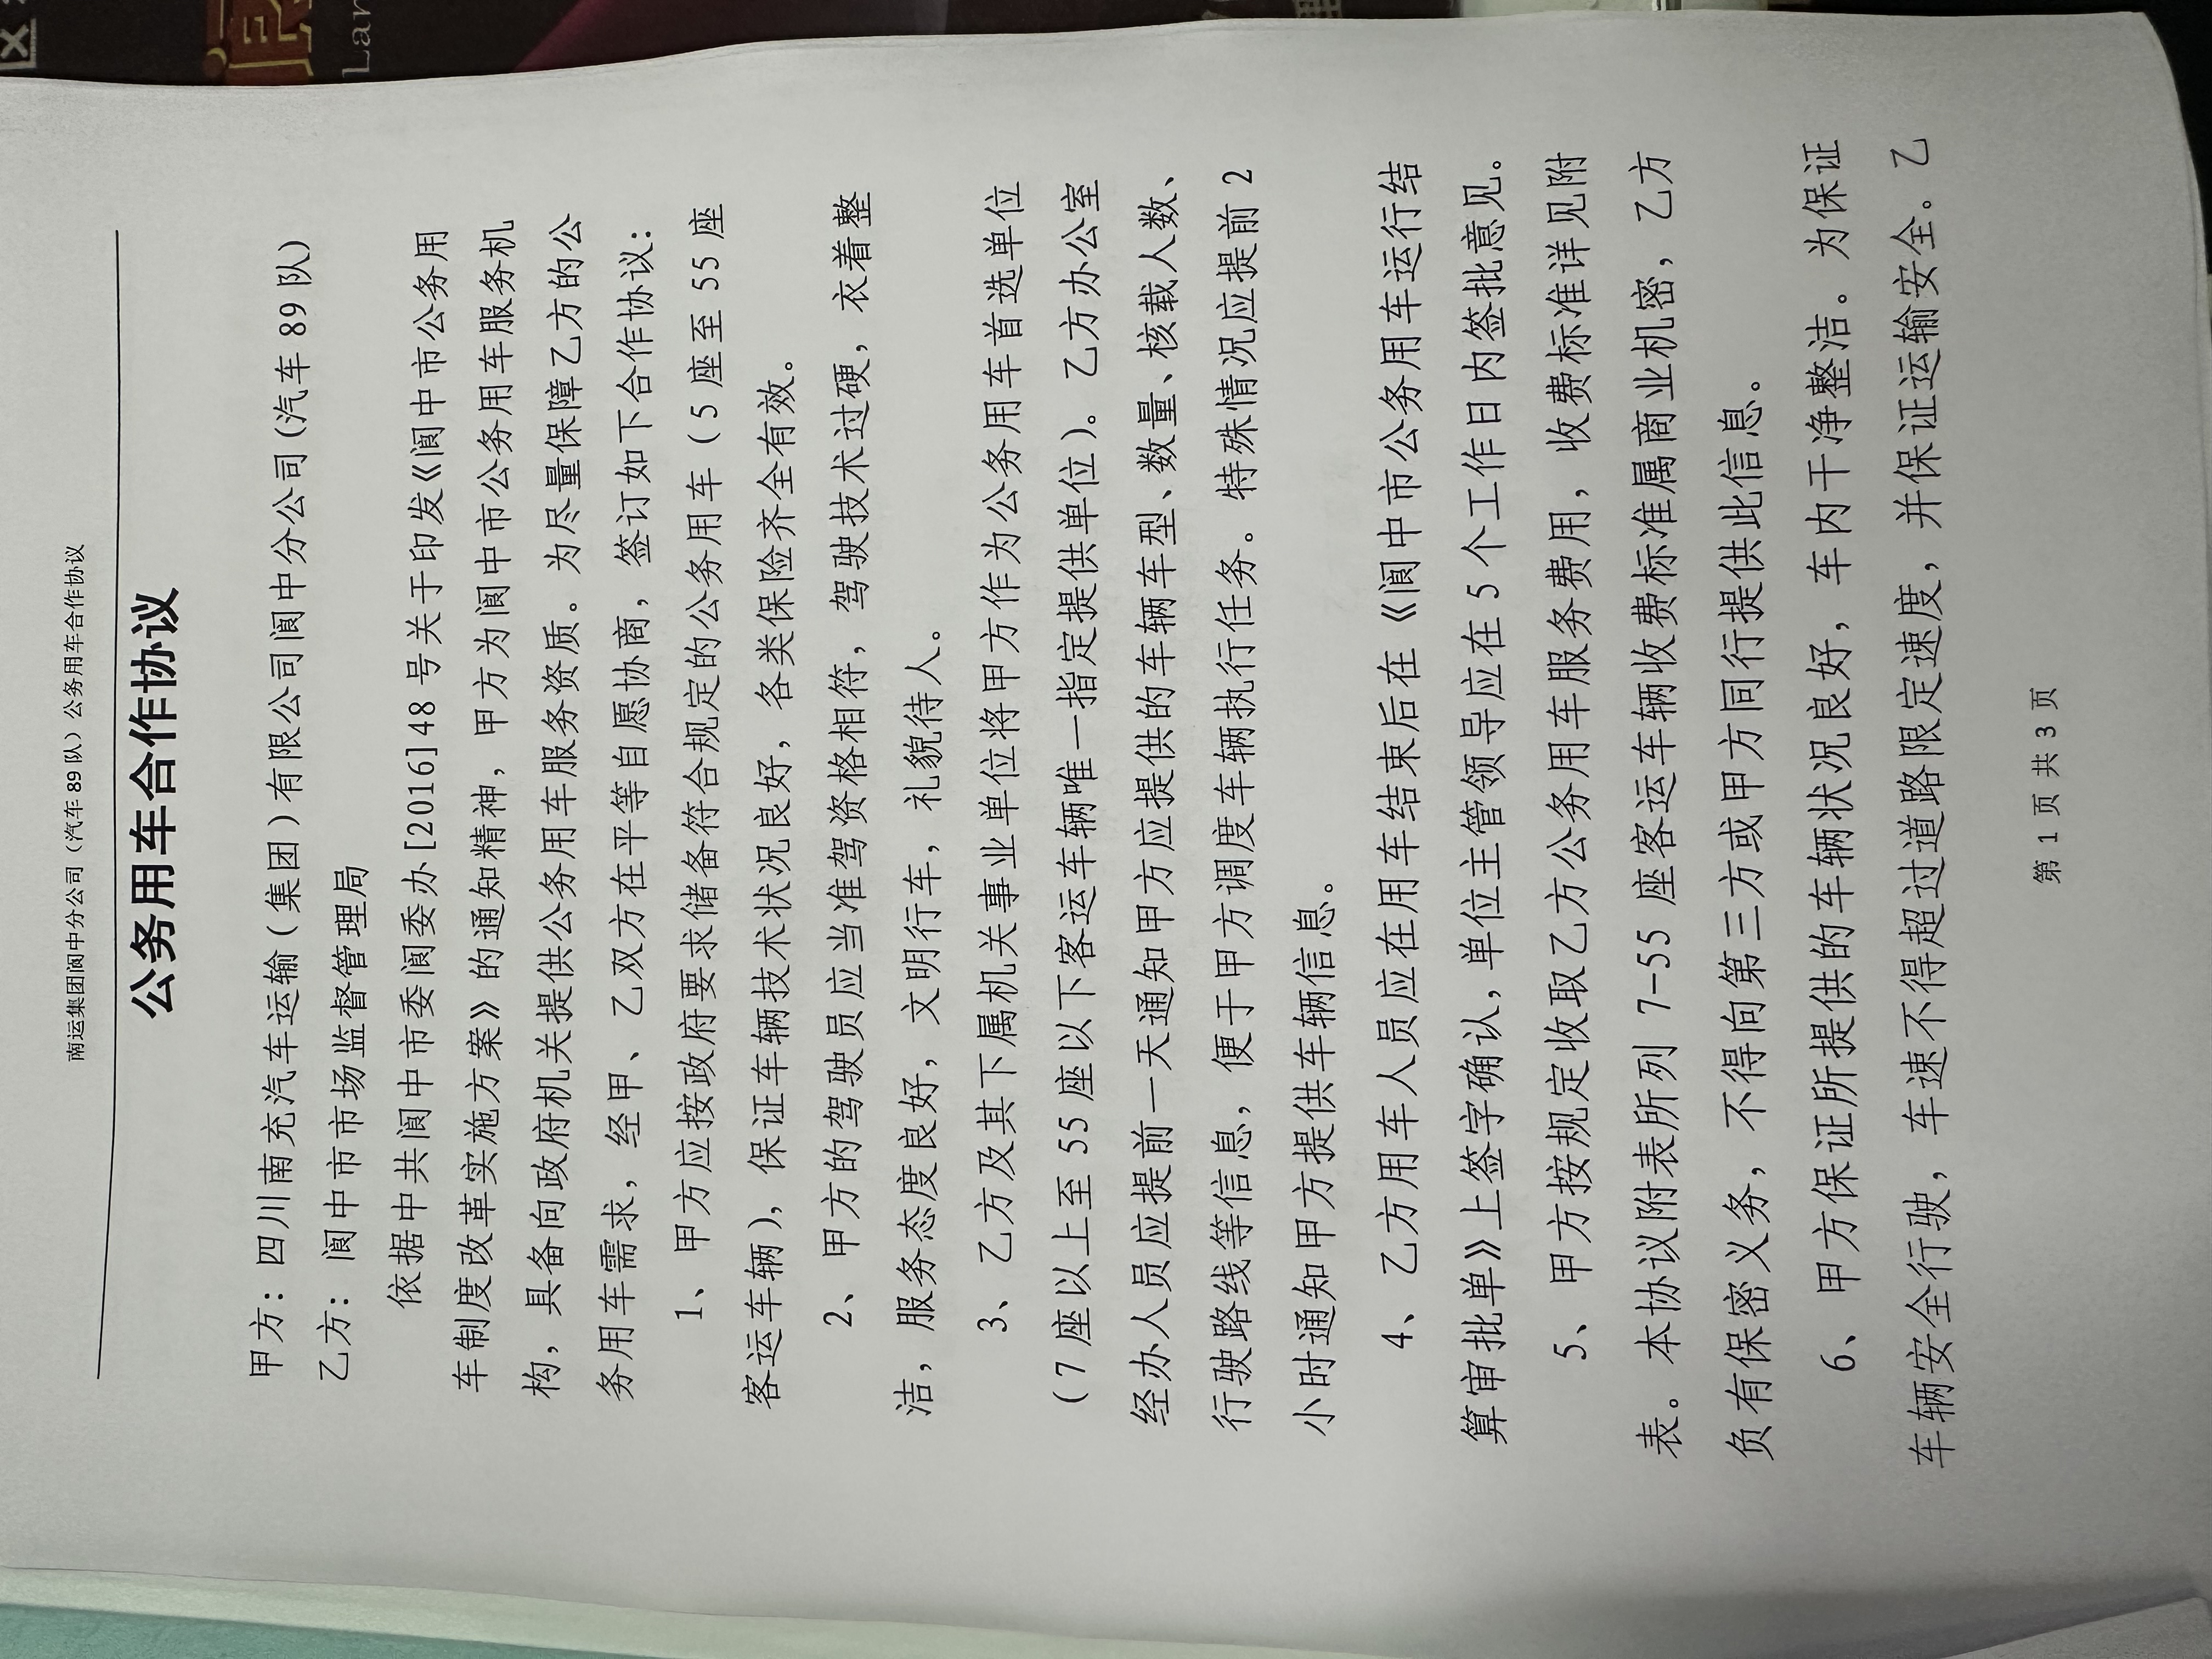 南运集团阆中分公司（汽车 89 队）公务用车合作协议
公务用车合作协议
甲方：四川南充汽车运输（集团）有限公司阆中分公司(汽车 89 队)
乙方：阆中市市场监督管理局
依据中共阆中市委阆委办[2016]48 号关于印发《阆中市公务用
车制度改革实施方案》的通知精神，甲方为阆中市公务用车服务机
构，具备向政府机关提供公务用车服务资质。为尽量保障乙方的公
务用车需求，经甲、乙双方在平等自愿协商，签订如下合作协议：
1、甲方应按政府要求储备符合规定的公务用车（5 座至 55 座
客运车辆），保证车辆技术状况良好，各类保险齐全有效。
2、甲方的驾驶员应当准驾资格相符，驾驶技术过硬，衣着整
洁，服务态度良好，文明行车，礼貌待人。
3、乙方及其下属机关事业单位将甲方作为公务用车首选单位
（7 座以上至 55 座以下客运车辆唯一指定提供单位）。乙方办公室
经办人员应提前一天通知甲方应提供的车辆车型、数量、核载人数、
行驶路线等信息，便于甲方调度车辆执行任务。特殊情况应提前 2
小时通知甲方提供车辆信息。
4、乙方用车人员应在用车结束后在《阆中市公务用车运行结
算审批单》上签字确认，单位主管领导应在 5 个工作日内签批意见。
5、甲方按规定收取乙方公务用车服务费用，收费标准详见附
表。本协议附表所列 7-55 座客运车辆收费标准属商业机密，乙方
负有保密义务，不得向第三方或甲方同行提供此信息。
6、甲方保证所提供的车辆状况良好，车内干净整洁。为保证
车辆安全行驶，车速不得超过道路限定速度，并保证运输安全。乙
第 1 页 共 3 页